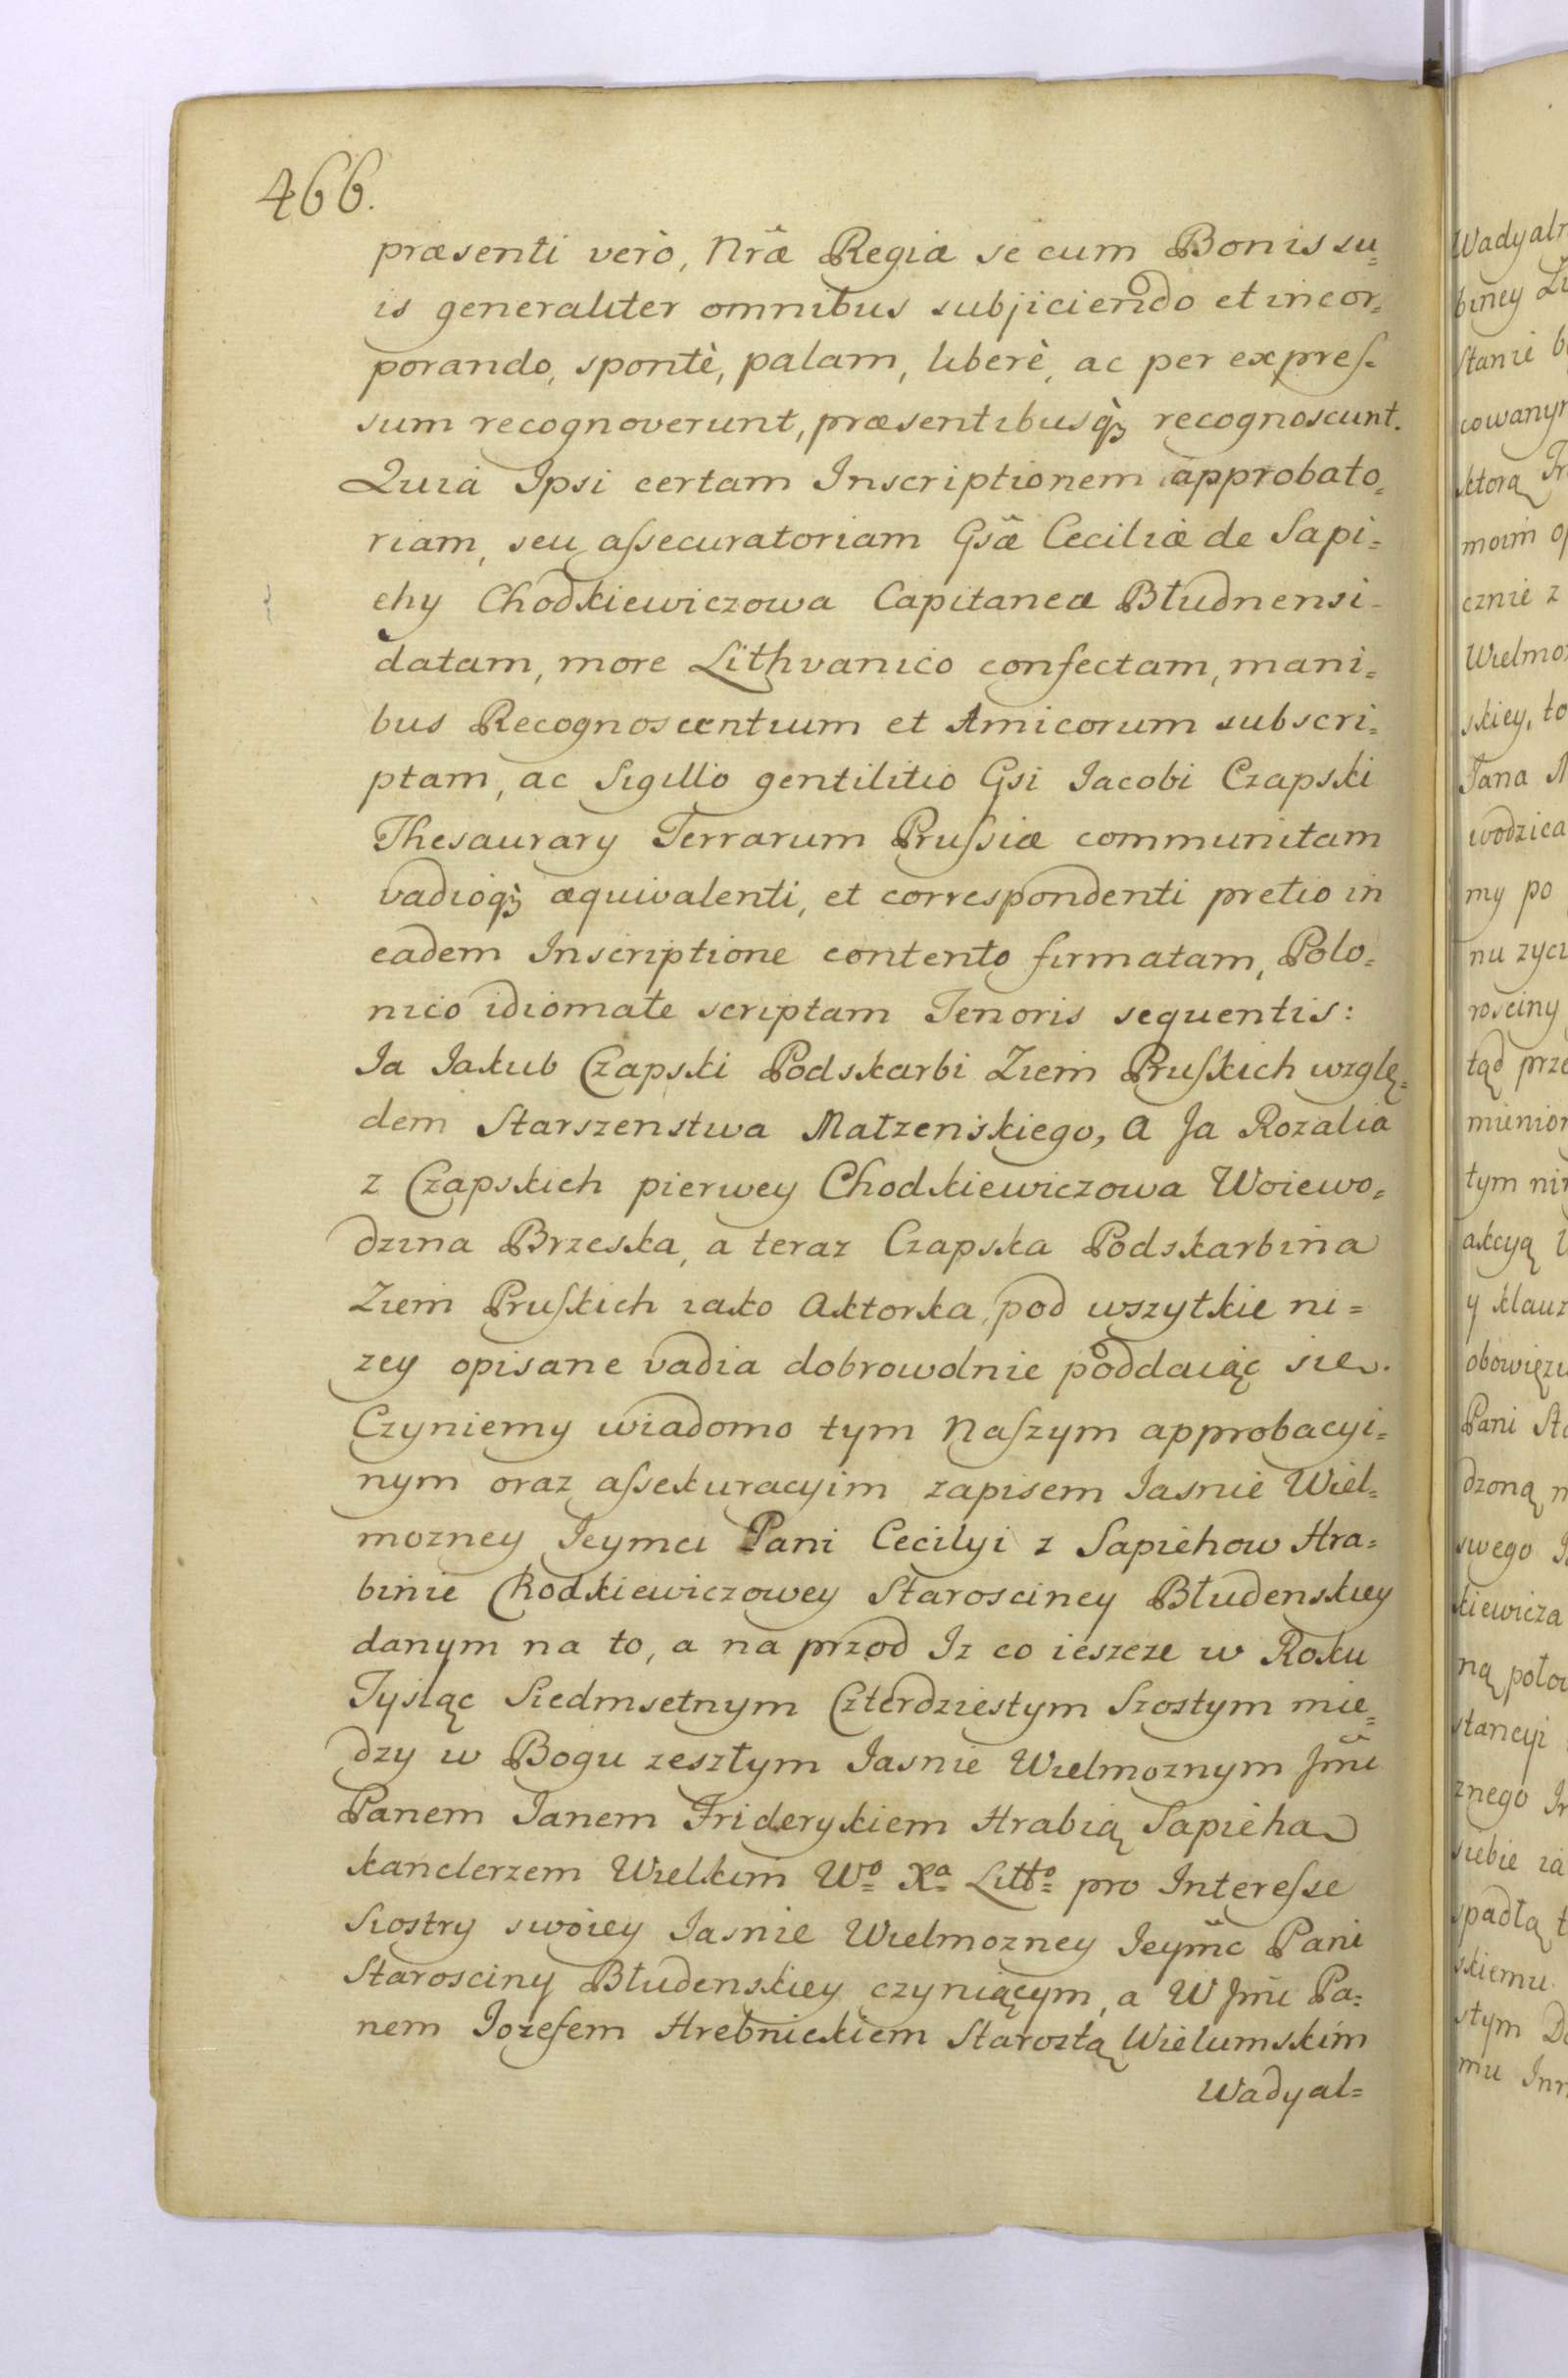 466.
præsenti verò, Nrã Regiæ se cum Bonis su=
is generaliter omnibus subjiciendo et incor=
porando, spontè, palam, liberè, ac per expres=
sum recognoverunt, præsentibusq3 recognoscunt.
Quia Ipsi certam Inscriptionem approbato=
riam, seu assecuratoriam Gsæ Ceciliæ de Sapi=
ehy Chodkiewiczowa Capitanea Błudnensi
datam, more Lithvanico confectam, mani=
bus Recognoscentium et Amicorum subscri=
ptam, ac Sigillo gentilitio Gsi Iacobi Czapski
Thesaurary Terrarum Prussiæ communitam
vadioq3 æquivalenti, et correspondenti pretio in
eadem Inscriptione contento firmatam, Polo=
nico idiomate scriptam Tenoris sequentis:
Ia Iakub Czapski Podskarbi Ziem Pruskich wzglę=
dem Starszenstwa Małzenskiego, a Ja Rozalia
z Czapskich pierwey Chodkiewiczowa Woiewo=
dzina Brzeska, a teraz Czapska Podskarbina
Ziem Pruskich iako Aktorka, pod wszytkie ni=
zey opisane vadia dobrowolnie poddaiąc sie.
Czyniemy wiadomo tym Naszym approbacyi=
nym oraz assekuracyim zapisem Iasnie Wiel=
mozney Ieymci Pani Cecilyi z Sapiehow Hra=
binie Chodkiewiczowey Starosciney Błudenskiey
danym na to, a na przod Iz co ieszcze w Roku
Tysiąc Siedmsetnym Czterdziestym Szostym mie=
dzy w Bogu zeszłym Iasnie Wielmoznym Jmci
Panem Ianem Friderykiem Hrabią Sapieha
kanclerzem Wielkim Wo Xa Litto pro Interesse
Siostry swoiey Iasnie Wielmozney Ieymc Pani
Starosciny Błudenskiey czyniącym, a W Jmci Pa=
nem Iozefem Hrebnickiem Starostą Wielumskim
Wadyal=